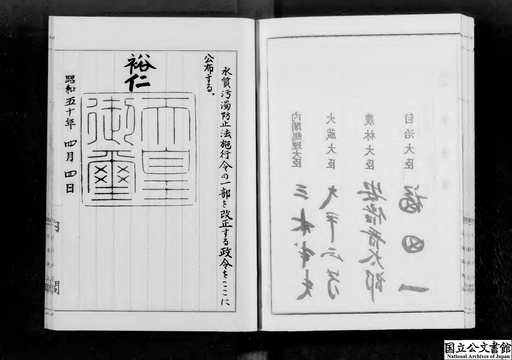 内閣総理大臣 三木武夫
大蔵大臣 大平正芳
農林大臣 安倍晋太郎
自治大臣 福田一
水質汚濁防止法施行令の一部を改正する政令をここに
公布する。
裕仁
天皇
御璽
昭和五十年四月四日
内閣
国立公文書館
National Archives of Japan